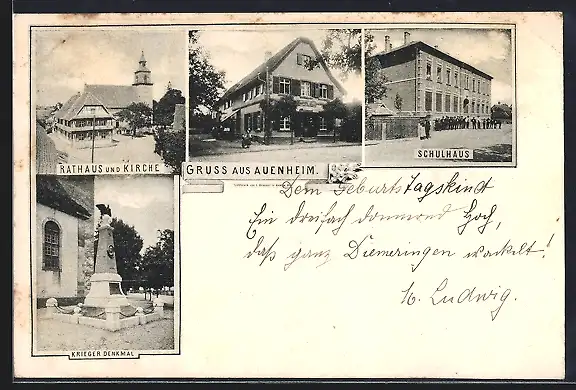 RATHAUS UND KIRCHE
GRUSS AUS AUENHEIM.
SCHULHAUS
Dem Geburtstagskind
Ein dreifach donnernd Hoch,
daß ganz Diemeringen wackelt!
H. Ludwig.
KRIEGER DENKMAL